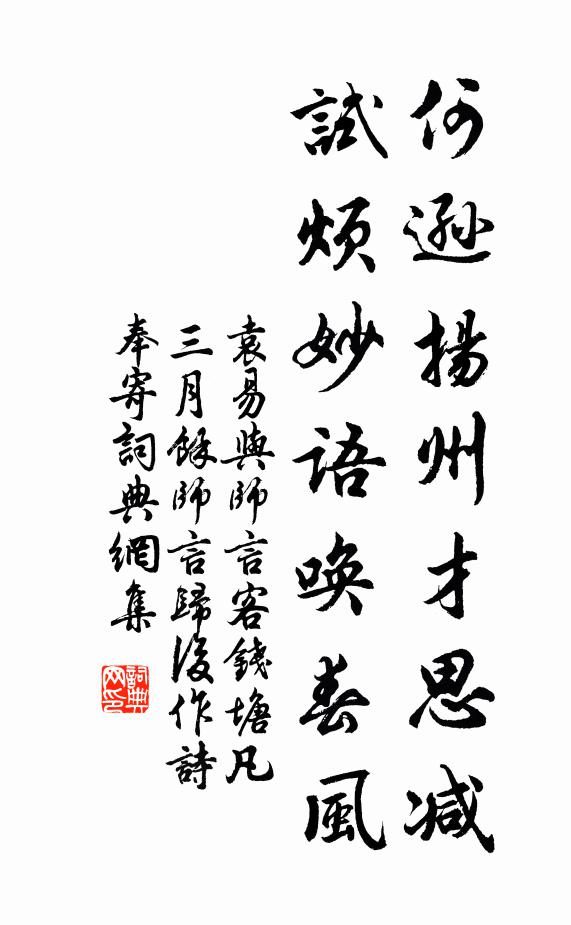 何遜揚州才思減
試煩妙語喚春風
袁易與師言客錢塘凡
三月餘師言歸後作詩
奉寄詞典網集
詞典網印